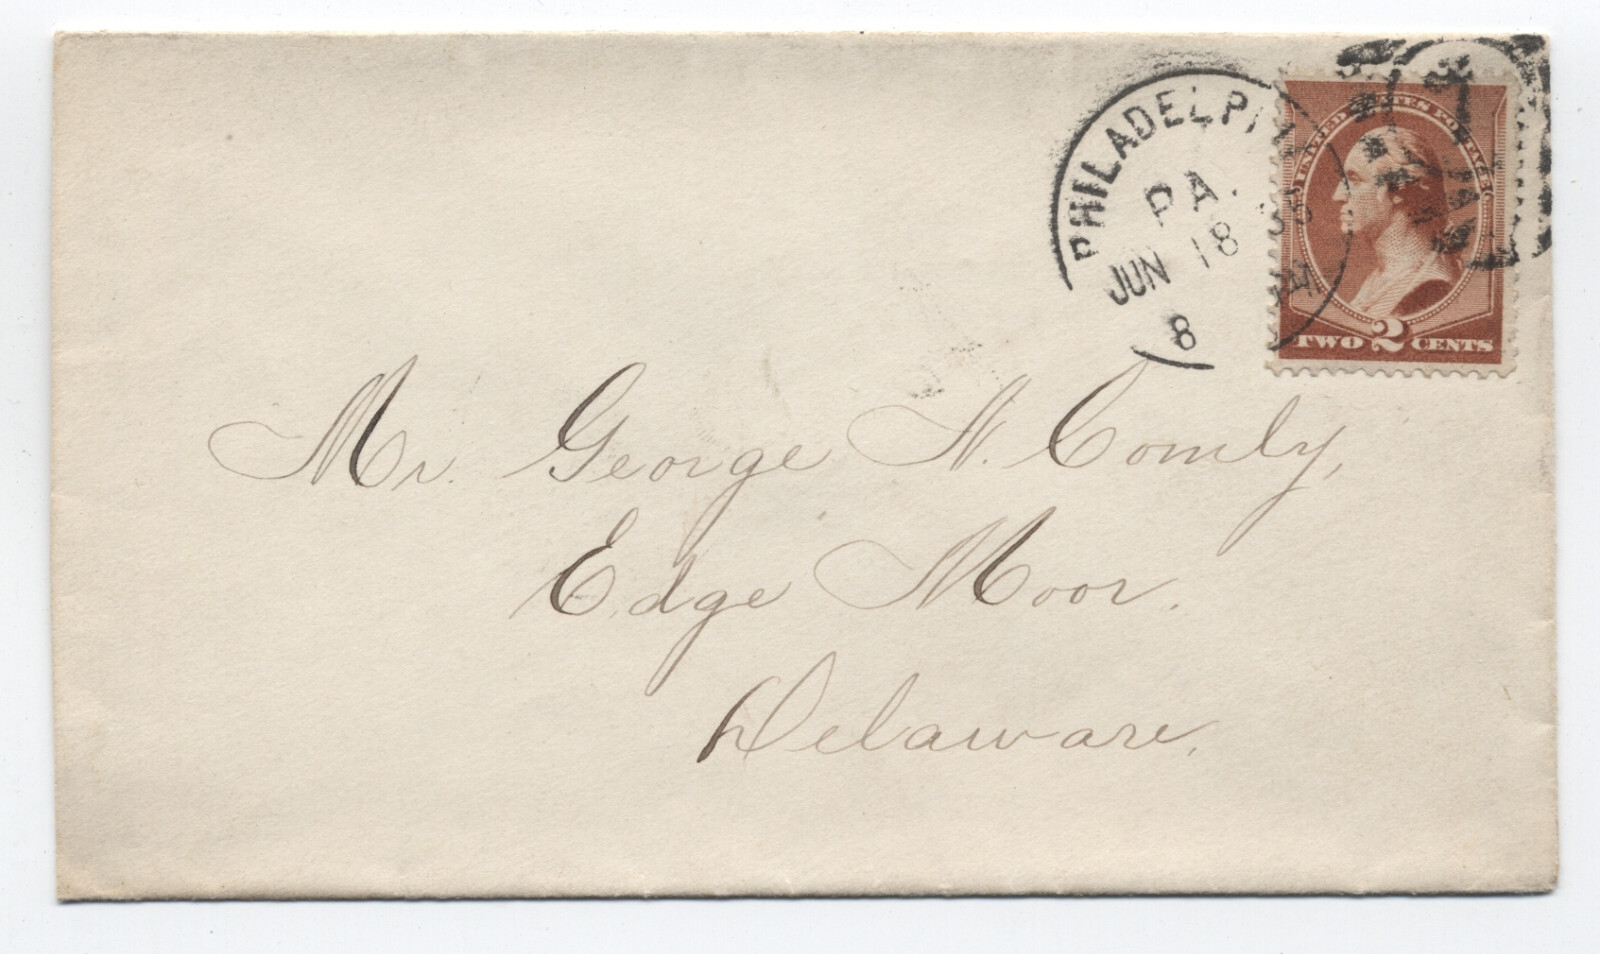 PHILADELPHIA
PA.
JUN 18
8
UNITED STATES POSTAGE
TWO 2 CENTS
Mr. George H. Comly,
Edge Moor.
Delaware.